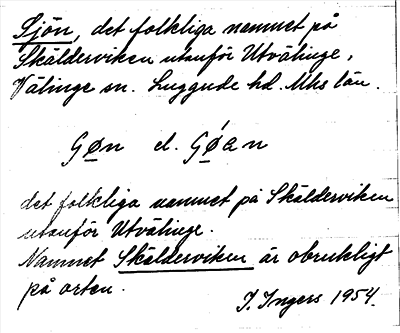 Sjön, det folkliga namnet på
Skälderviken utanför Utvälinge,
Välinge sn. Luggude hd. Mhs län.
Gøn el. Gǿan
det folkliga namnet på Skälderviken
utanför Utvälinge.
Namnet Skälderviken är obrukligt
på orten.
I. Ingers 1954.